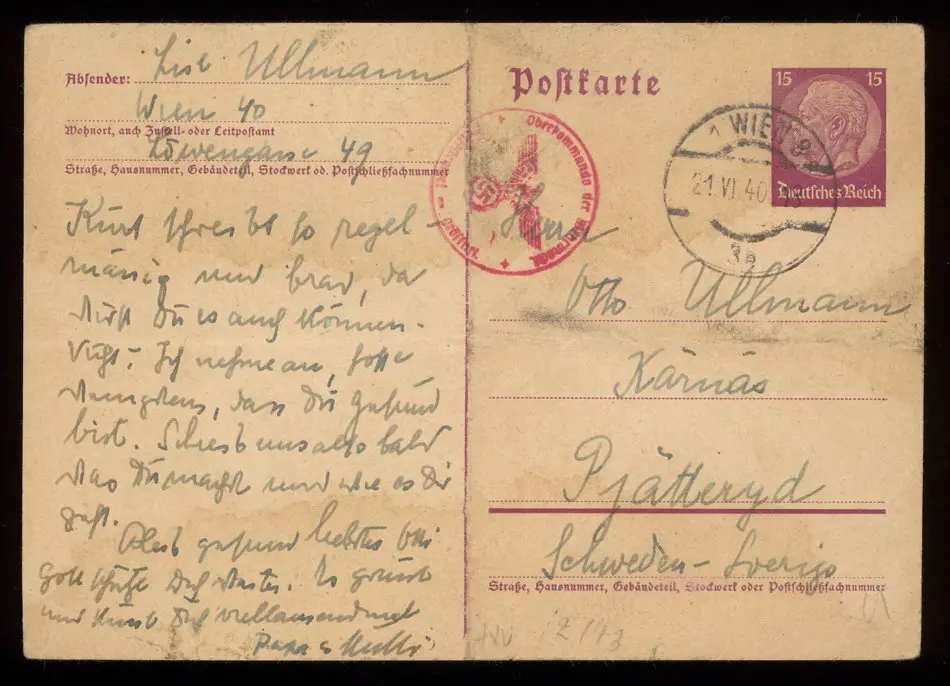 Absender: Lise Ullmann
Wien 40
Wohnort, auch Zustell- oder Leitpostamt
Löwengasse 49
Straße, Hausnummer, Gebäudeteil, Stockwerk od. Postschließfachnummer
Kurt schreibt so regel-
mässig und brav, da
wirst Du es auch können.
Nicht? Ich nehme an, hoffe
wenigstens, dass Du gesund
bist. Schreib uns also bald
was Du machst und wie es Dir
geht.
Bleib gesund liebstes Otti
Gott schütze Dich weiter. Es grüsst
und küsst Dich vieltausendmal
Papa & Mutti
Postkarte
15 15
Deutsches Reich
WIEN
21.VI.40
3e
Oberkommando der Wehrmacht
geöffnet
Herrn
Otto Ullmann
Kärnäs
Pjätteryd
Schweden - Sverige
Straße, Hausnummer, Gebäudeteil, Stockwerk oder Postschließfachnummer